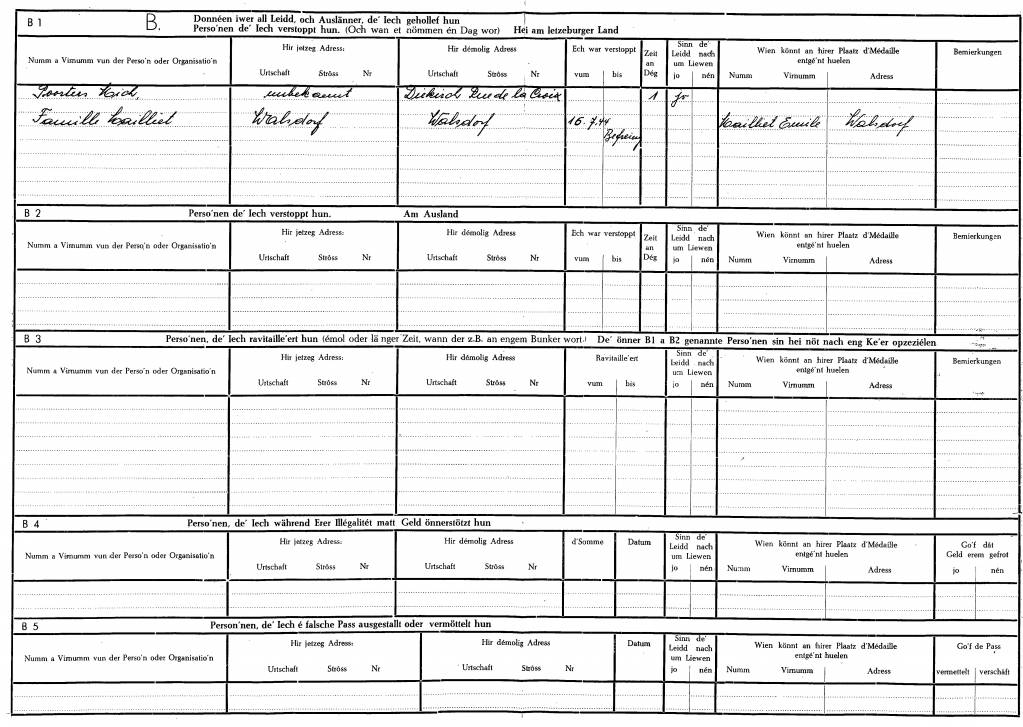 B 1 B. Donnéen iwer all Leidd, och Auslänner, de' Iech gehollef hun
Perso'nen de' Iech verstoppt hun. (Och wan et nömmen én Dag wor) Hei am letzeburger Land
Numm a Virnumm vun der Perso'n oder Organisatio'n Hir jetzeg Adress: Hir démolig Adress Ech war verstoppt Zeit an Dég Sinn de' Leidd nach um Liewen Wien könnt an hirer Plaatz d'Médaille entgé'nt huelen Bemierkungen
Urtschaft Ströss Nr Urtschaft Ströss Nr vum bis jo nén Numm Virnumm Adress
unbekannt Diekirch Rue de la Croix 1 jo
Famille Hailliet Walsdorf Walsdorf 16.7.44 Hailliet Emile Walsdorf
B 2 Perso'nen de' Iech verstoppt hun. Am Ausland
Numm a Virnumm vun der Perso'n oder Organisatio'n Hir jetzeg Adress: Hir démolig Adress Ech war verstoppt Zeit an Dég Sinn de' Leidd nach um Liewen Wien könnt an hirer Plaatz d'Médaille entgé'nt huelen Bemierkungen
Urtschaft Ströss Nr Urtschaft Ströss Nr vum bis jo nén Numm Virnumm Adress
B 3 Perso'nen, de' Iech ravitaille'ert hun (émol oder länger Zeit, wann der z.B. an engem Bunker wort.) De' önner B1 a B2 genannte Perso'nen sin hei nöt nach eng Ke'er opzeziélen
Numm a Virnumm vun der Perso'n oder Organisatio'n Hir jetzeg Adress: Hir démolig Adress Ravitaille'ert Sinn de' Leidd nach um Liewen Wien könnt an hirer Plaatz d'Médaille entgé'nt huelen Bemierkungen
Urtschaft Ströss Nr Urtschaft Ströss Nr vum bis jo nén Numm Virnumm Adress
B 4 Perso'nen, de' Iech während Erer Illégalitét matt Geld önnerstötzt hun
Numm a Virnumm vun der Perso'n oder Organisatio'n Hir jetzeg Adress: Hir démolig Adress d'Somme Datum Sinn de' Leidd nach um Liewen Wien könnt an hirer Plaatz d'Médaille entgé'nt huelen Go'f dât Geld erem gefrot
Urtschaft Ströss Nr Urtschaft Ströss Nr jo nén Numm Virnumm Adress jo nén
B 5 Person'nen, de' Iech é falsche Pass ausgestallt oder vermöttelt hun
Numm a Virnumm vun der Perso'n oder Organisatio'n Hir jetzeg Adress: Hir démolig Adress Datum Sinn de' Leidd nach um Liewen Wien könnt an hirer Plaatz d'Médaille entgé'nt huelen Go'f de Pass
Urtschaft Ströss Nr Urtschaft Ströss Nr jo nén Numm Virnumm Adress vermettelt verschâft